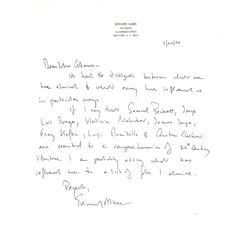 EDWARD ALBEE
NEW YORK, N.Y. 10013
It is hard to distinguish between whom one
have admired & whom may have influenced us
in particular ways.
If I say that Samuel Beckett, Jorge
Luis Borges, Vladimir Nabokov, James Joyce,
Franz Kafka, Luigi Pirandello & Anton Chekov
are essential to a comprehension of 20th Century
literature I am probably adding whom has
influenced me to a list of folk I admire.
Regards,
Edward Albee